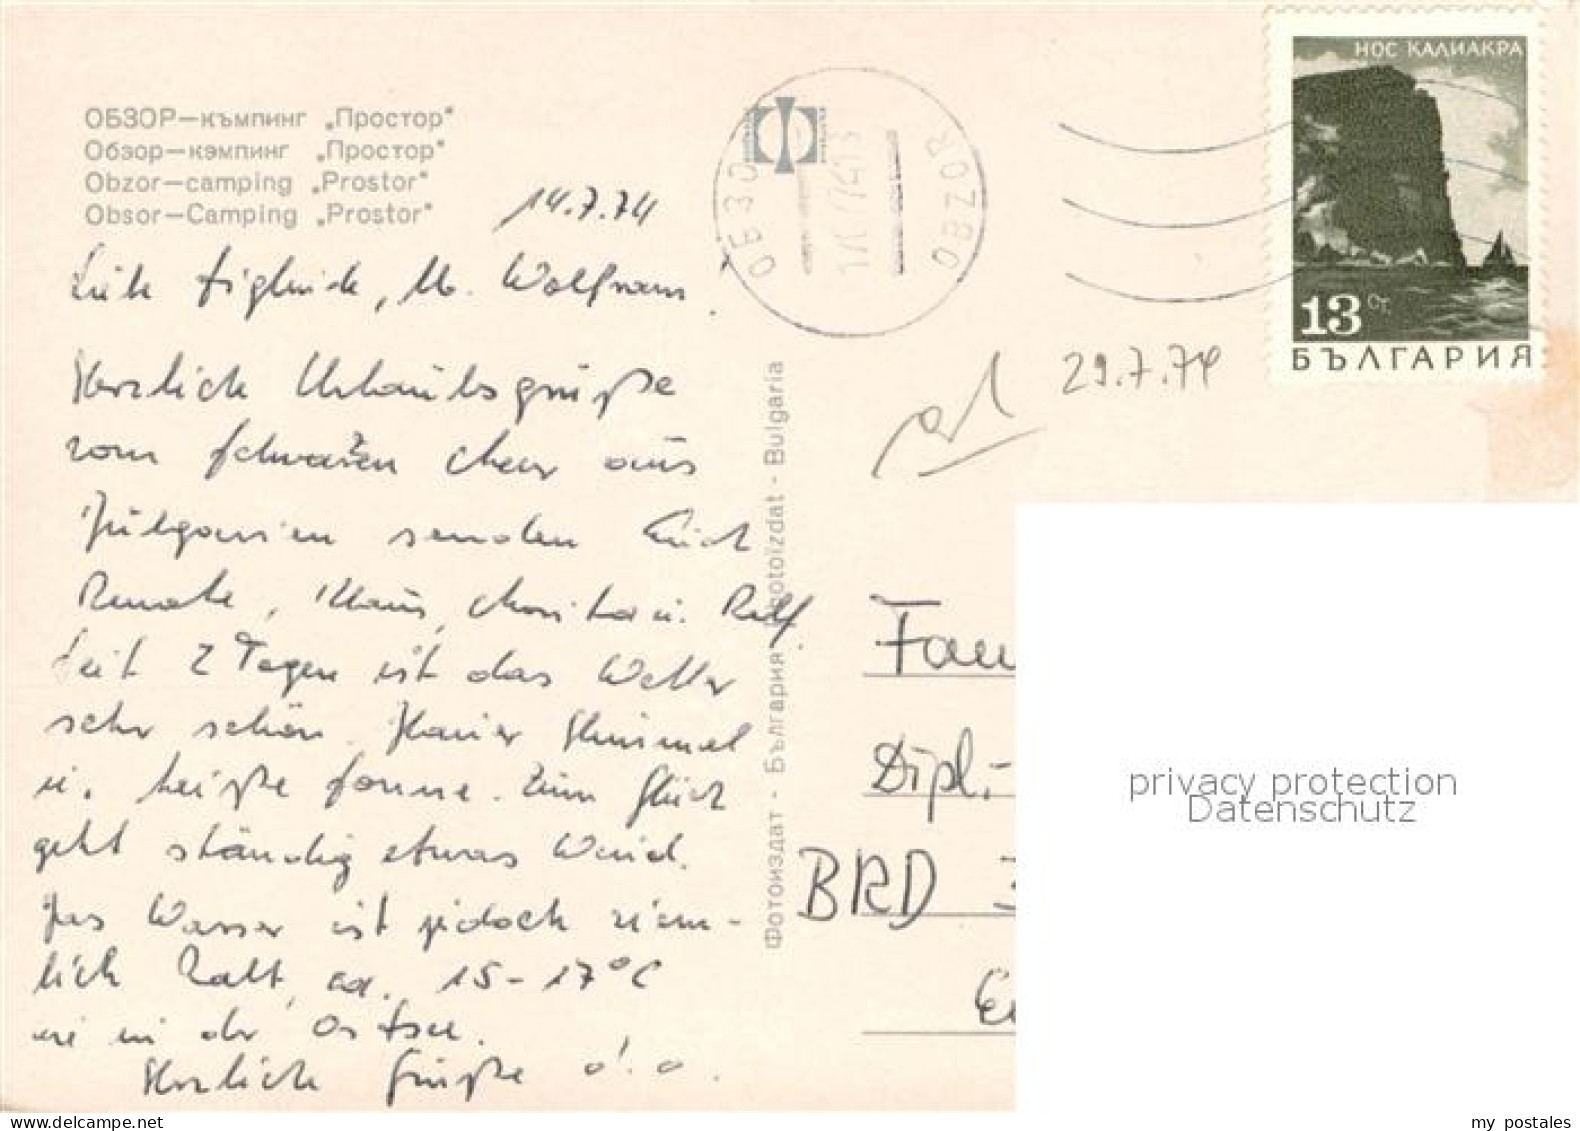 ОБЗОР—къмпинг „Простор"
Обзор—кэмпинг „Простор"
Obzor—camping „Prostor"
Obsor—Camping „Prostor"
14.7.74
Wolfram
Herzliche Urlaubsgrüße
vom schwarzen Meer aus
Bulgarien senden Euch
Renate, Klaus, u. Ralf
Seit 2 Tagen ist das Wetter
sehr schön. Himmel
u. heiße Sonne. Zum Glück
geht ständig etwas Wind.
Das Wasser ist jedoch ziem-
lich kalt, ca. 15-17°C
wie in der Ostsee.
Herzliche Grüße
Фотоиздат - България Fotoizdat - Bulgaria
ОБЗО OBZOR
НОС КАЛИАКРА
13 Ст.
БЪЛГАРИЯ
29.7.74
Fam
Dipl.-
BRD 3
privacy protection
Datenschutz
my postales
delcampe.net